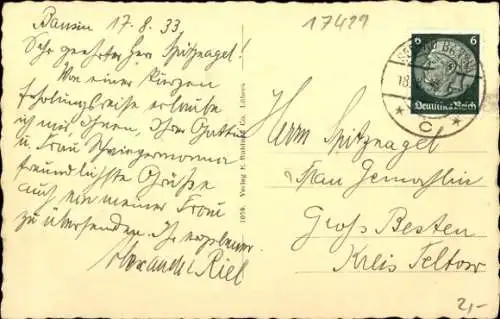 Bansin 17.8.33.
17429
Sehr geehrter Herr Spitznagel!
Von einer kurzen
Erholungsreise erlaube
ich mir, Ihnen, Ihrer Gattin
u. Frau Schwiegermama
freundlichste Grüße
auch von meiner Frau
zu übersenden. Ihr ergebener
Alexander Riel
1059. Verlag E. Buhbe & Co. Lübeck
6 6
Deutsches Reich
18.
* C *
Herrn Spitznagel
Frau Gemahlin
Groß Besten
Kreis Teltow
2,-